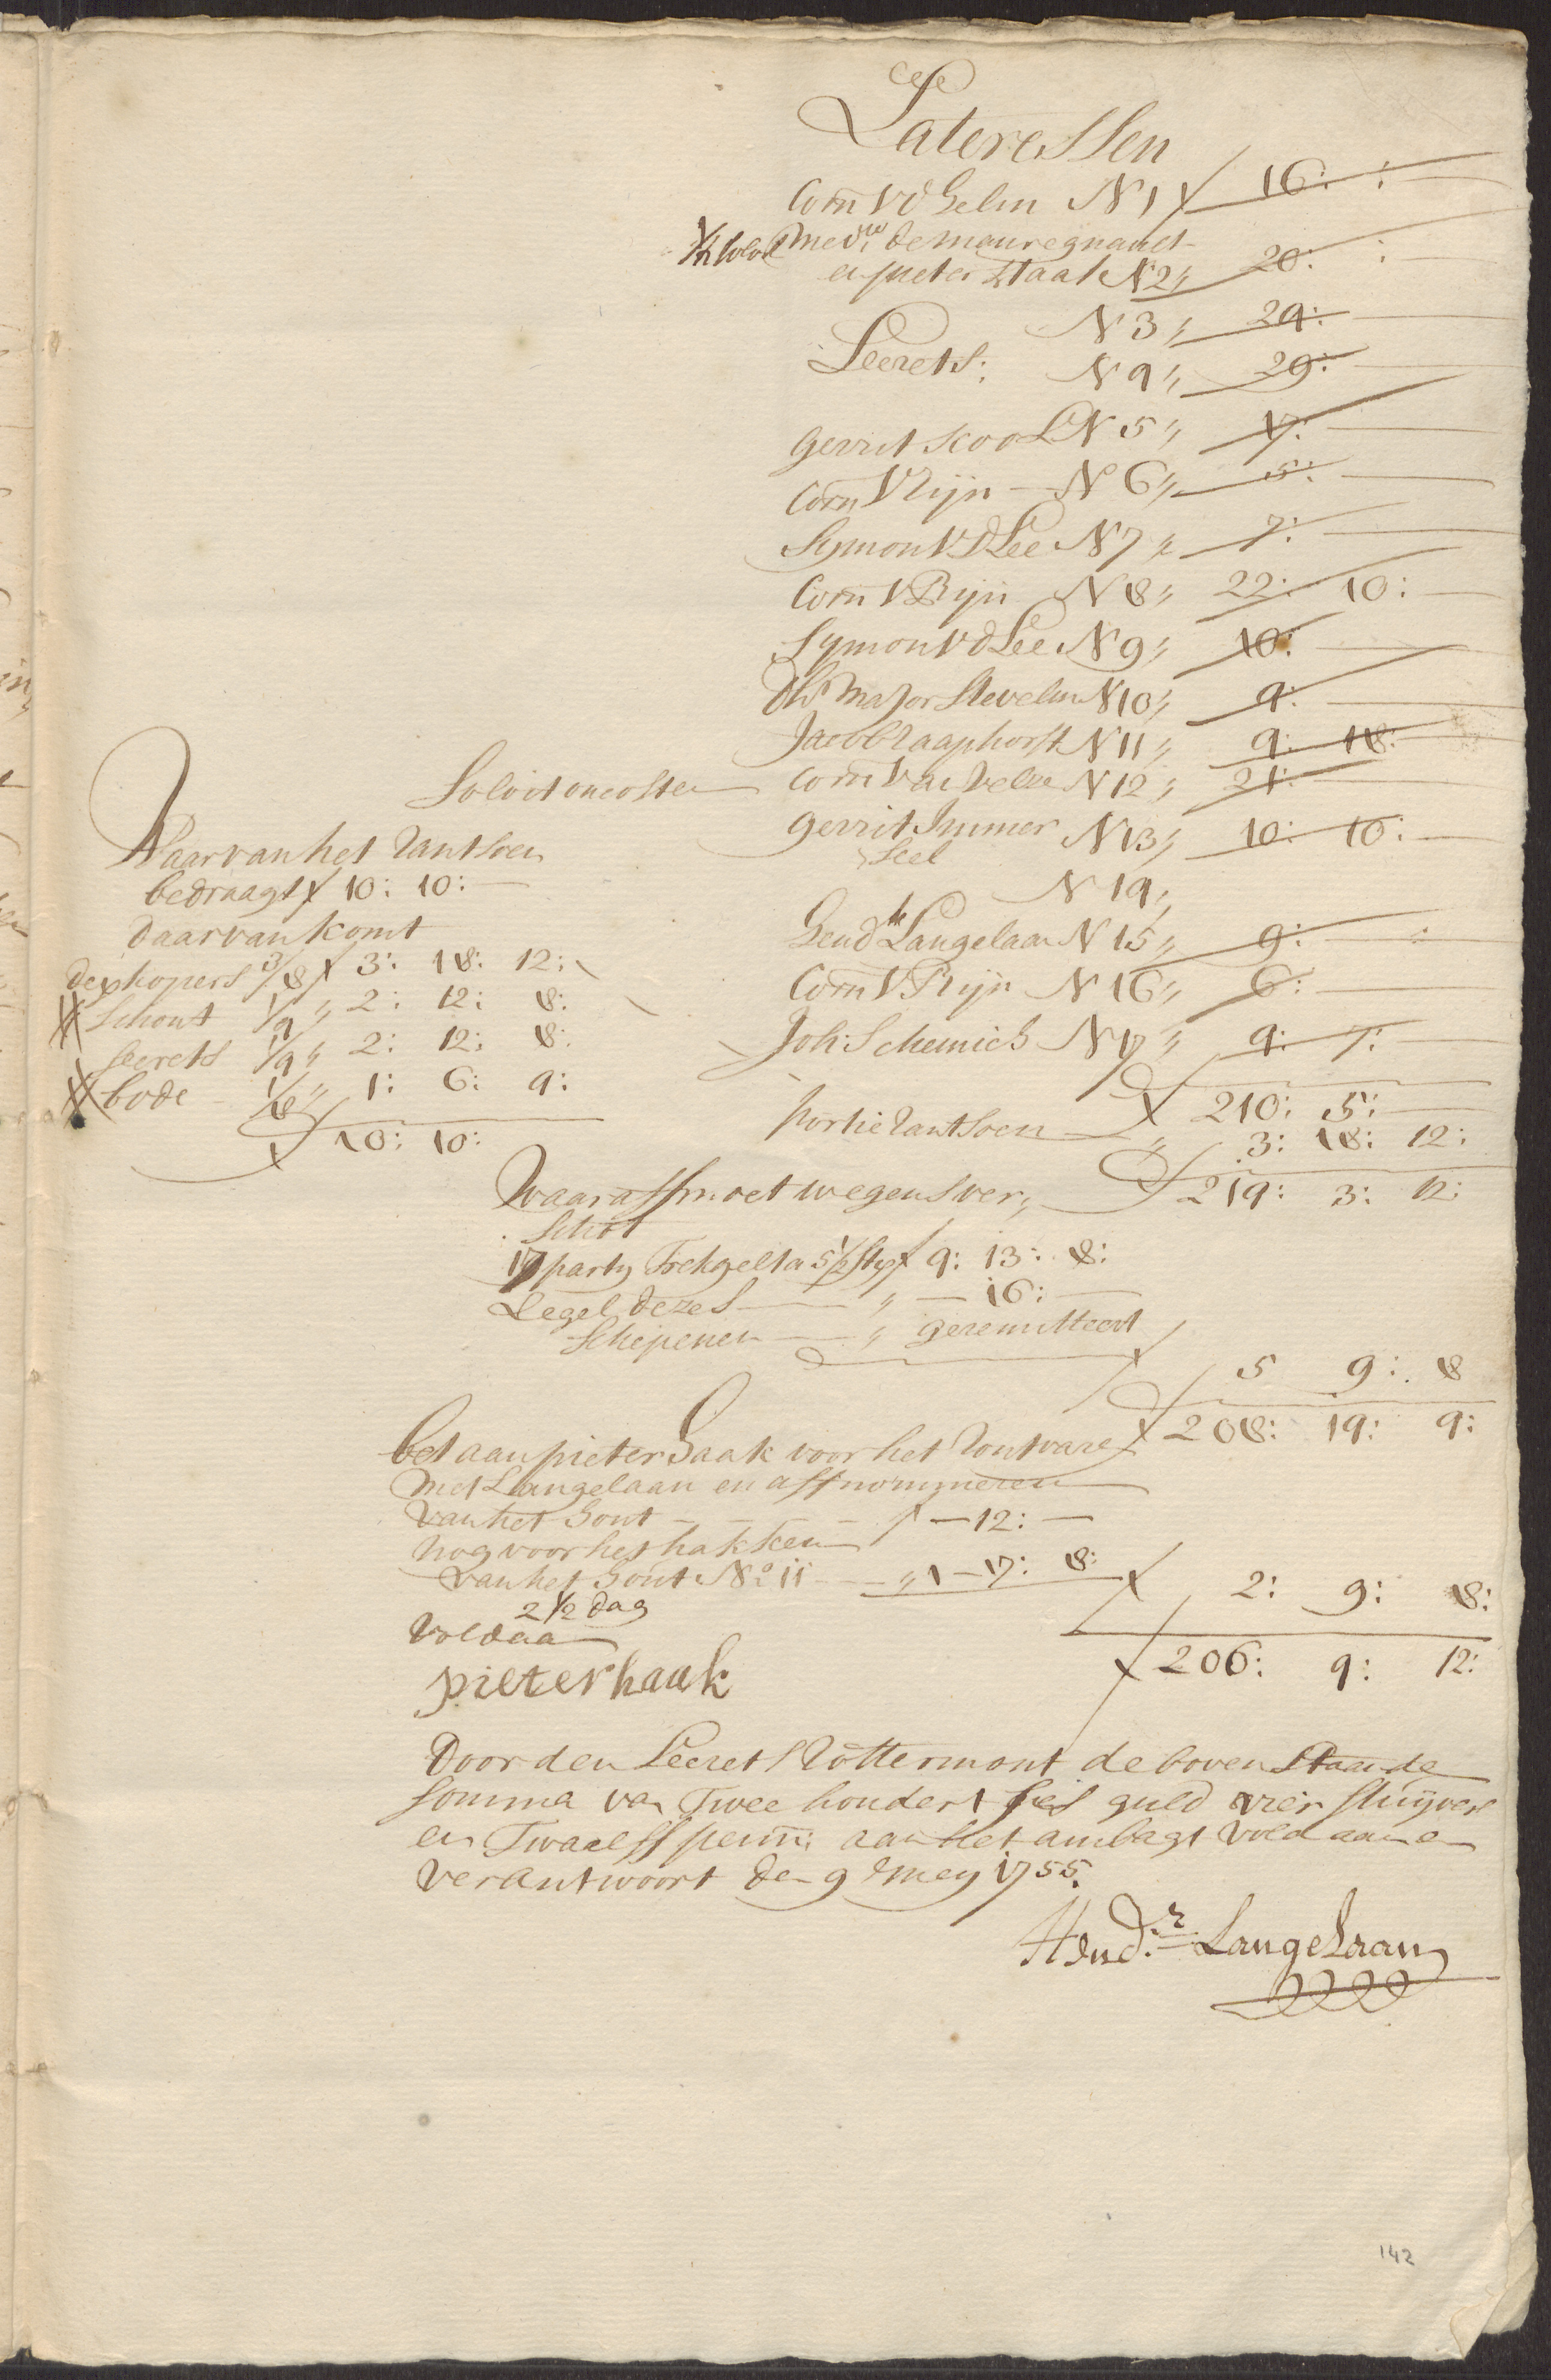 Lateressen
Corn VdHelm N 1 ƒ 16: :
½ solvt Mevrw de Mauregnault
en pieter Staal N 2 „ 20: :
N 3 „ 24:
Secrets: N 4 „ 29:
Gerrit Kool N 5 „ 17:
Corn V Rijn N 6 „ 5:
Symon VdLee N 7 „ 7:
Corn V Rijn N 8 „ 22: 10:
Symon VdLee N 9 „ 10:
dhr Major Stevelin N 10 „ 4:
Jacob Raaphorst N 11 „ 4: 18:
Solvit oncosten Corn van Velse N 12 „ 21:
Gerrit Immer N 13 „ 10: 10:
seel
N 14 „
Hendk Langelaan N 15 „ 9: :
Corn V Rijn N 16 „ 6:
Joh: Schemich N 17 „ 4: 7:
ƒ 210: 5:
portie Rantsoen „ 3: 18: 12:
ƒ 214: 3: 12:
Waar van het Rantsoen
bedraagt ƒ 10: 10:
daar van komt
de kopers 3/8 ƒ 3: 18: 12:
Schout ¼ „ 2: 12: 8:
secrets ¼ „ 2: 12: 8:
bode 1/8 „ 1: 6: 4:
ƒ 10: 10:
Waar aff moet wegens ver„
schot
17 party Trekgelt a 5½ st ƒ 4: 13: 8:
Segel dezes „ 16:
Schepenen „ geremitteert
ƒ 5 9: 8
ƒ 208: 14: 4:
bet aan pieter Haak voor het Rontvaren
met Langelaan en aff nommeren
van het Hout ƒ 12:
nog voor het hakken
van het Hout No 11 „ 1 17: 8:
ƒ 2: 9: 8:
2½ dag
voldaan
ƒ 206: 4: 12:
pieter haak
Door den Secrets Rottermont de bovenstaande
somma van Twee hondert ses guld vier stuijvers
en Twaelff penn: aan het ambagt voldaan en
verantwoort den 9 Mey 1755.
Hend.k Langelaan
142